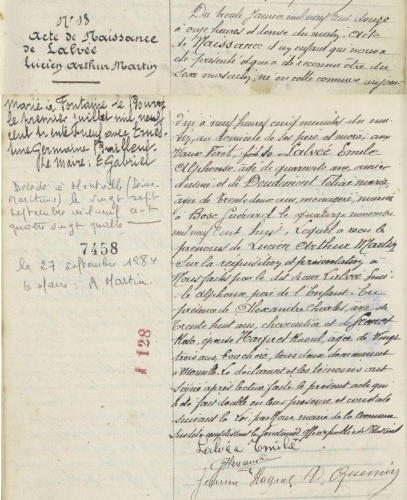 N° 18
Acte de Naissance
de Lalvée
Lucien Arthur Martin
Marié à Fontaine le Bourg
le premier juillet mil neuf
cent trente neuf avec Ernes-
tine Germaine
Le Maire: E Gabriel
Décédé à Montville (Seine-
Maritime) le vingt sept
septembre mil neuf cent
quatre vingt quatre
7458
le 27 septembre 1984
le Maire: A Martin.
# 128
Du trente Janvier mil neuf cent douze
à onze heures et demie du matin, Acte
de Naissance d'un enfant qui nous a
été présenté et qui a été reconnu être du
sexe masculin, né en cette commune aujour
d'hui à neuf heures cinq minutes du ma-
tin, au domicile de ses père et mère, aux
Vaux Foret, fils de Lalvée Emile
Alphonse, âgé de quarante ans, ouvrier
d'usine, et de Doudement Maria,
âgée de trente deux ans, ménagère, mariés
à Bosc Guérard le quatorze novembre
mil neuf cent huit, lequel a reçu les
prénoms de Lucien Arthur Martin
Sur la réquisition et présentation à
Nous faites par le dit sieur Lalvée Emi-
le Alphonse, père de l'Enfant. En
présence de Alexandre Charles, âgé de
trente huit ans, charcutier et de
épouse Hagnet âgée de vingt
trois ans, bouchère, tous deux domiciliés
à Monville. Le déclarant et les témoins ont
signé après lecture faite le présent acte qui
a été fait double en leur présence et constaté
suivant la Loi, par Nous maire de la Commune
susdite remplissant les fonctions d'officier public de l'Etat Civil
Lalvée Emile
Alexandre
Jeanne Hagnet